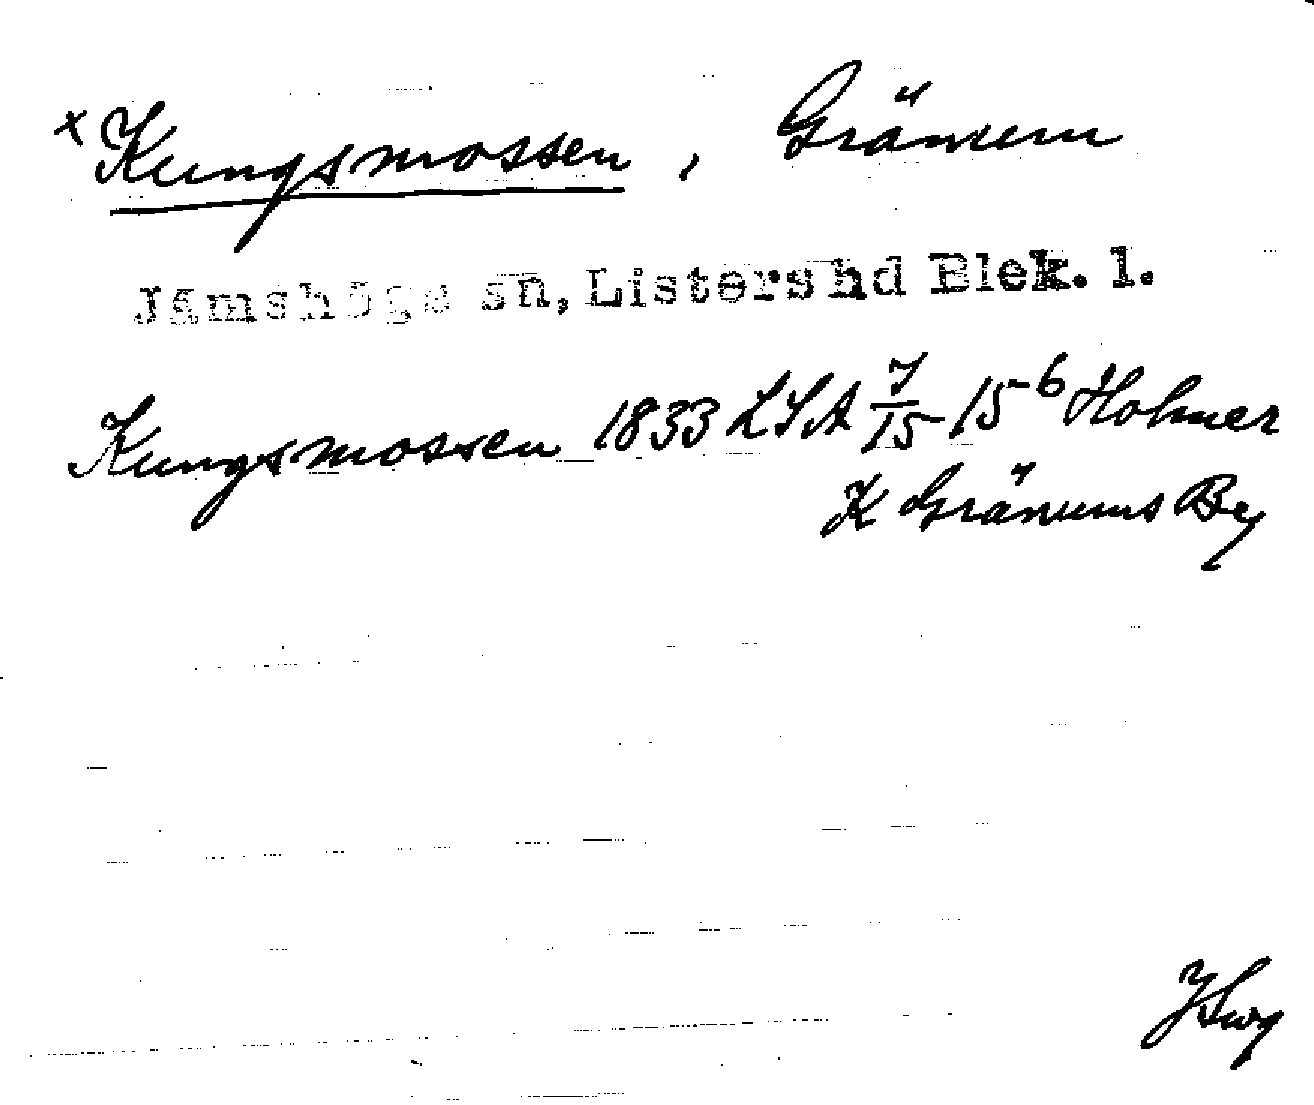 x Kungsmossen, Gränum
Jämshögs sn, Listers hd Blek. l.
Kungsmossen 1833 LSA J/15 - 15⁶ Holmer
K Gränums By